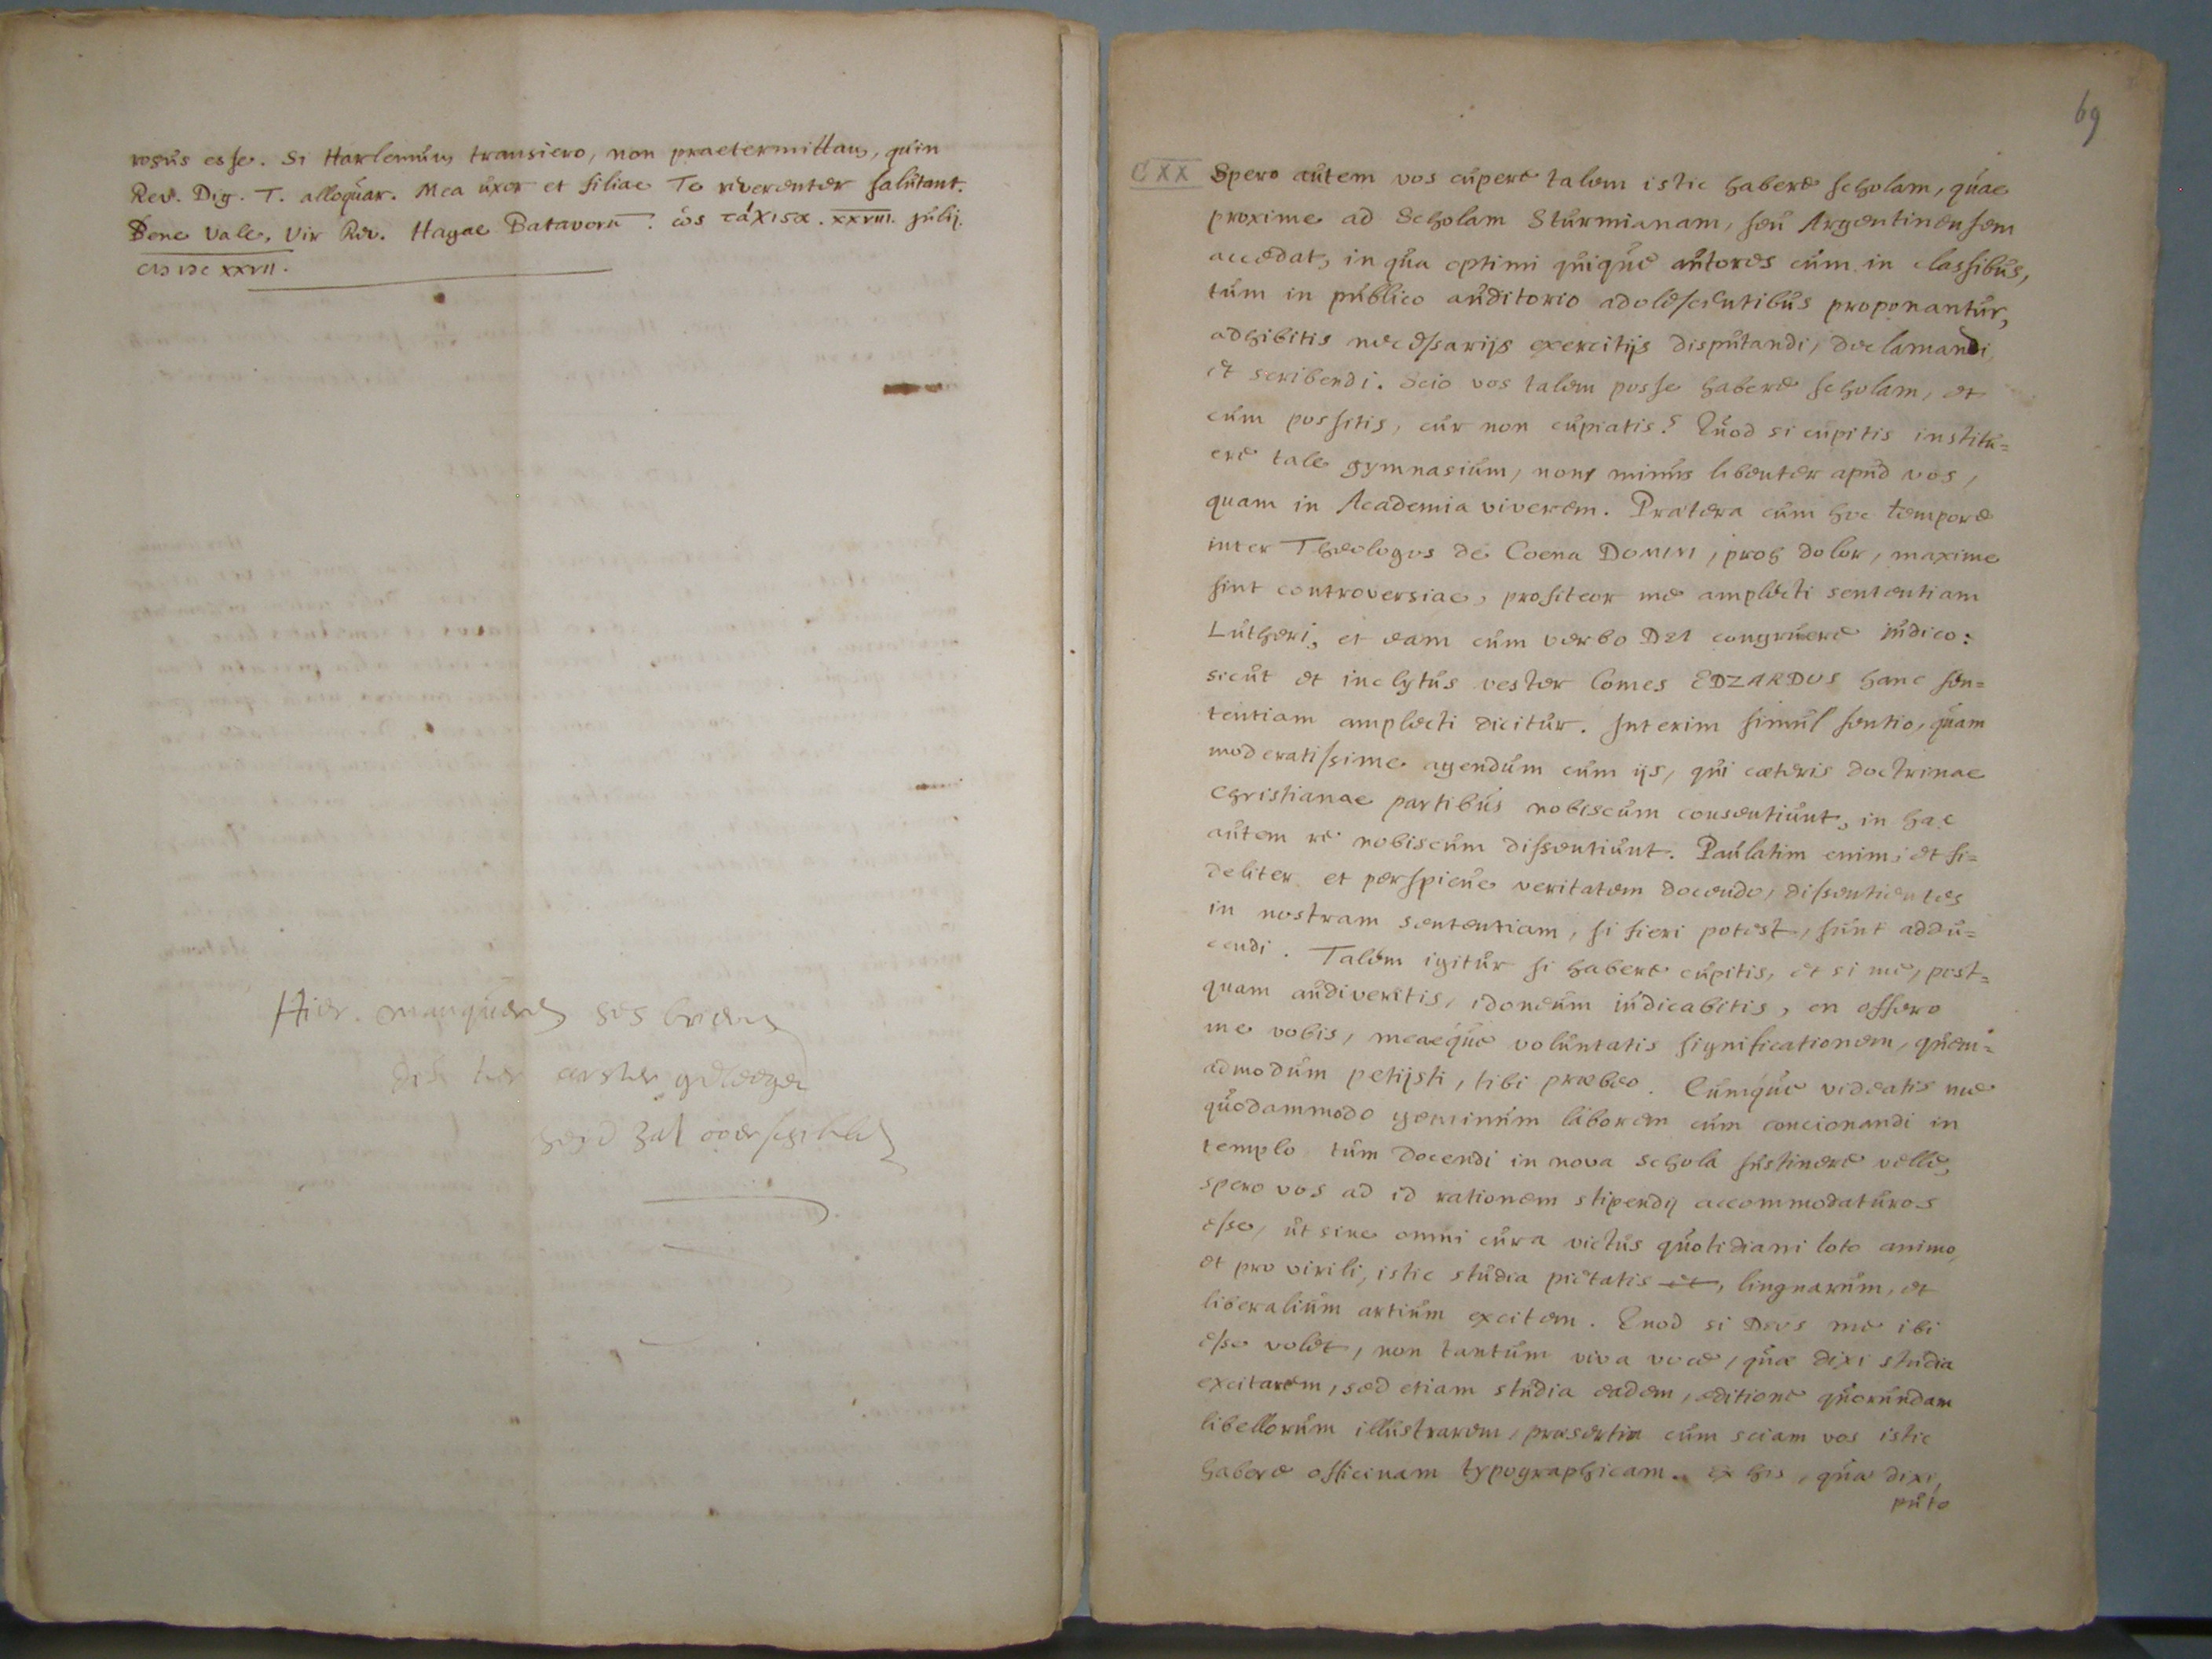 rosus esse. Si Harlemum transiero, non praetermittam, quin
Rev. Dig. T. alloquar. Mea uxor et filiae Te reverenter salutant.
Bene vale, Vir Rev. Hagae Batavorū. ὡς τάχιστα. XXVIII. Julij.
CIƆ IƆC XXVII.
Hier manqueren ses brieven
die ter eerster gelegen
heid zal overschicken
69
CXX
Spero autem vos cupere talem istic habere scholam, quae
proxime ad Scholam Sturmianam, seu Argentinensem
accedat, in qua optimi quique autores cum in classibus,
tum in publico auditorio adolescentibus proponantur,
adhibitis necessarijs exercitijs disputandi, declamandi
et scribendi. Scio vos talem posse habere scholam, et
cum possitis, cur non cupiatis? Quod si cupitis institu=
ere tale gymnasium, non minus libenter apud vos,
quam in Academia viverem. Praeterea cum hoc tempore
inter Theologos de Coena DOMINI, proh dolor, maxime
sint controversiae, profiteor me amplecti sententiam
Lutheri, et eam cum verbo DEI congruere judico:
sicut et inclytus vester Comes EDZARDUS hanc sen=
tentiam amplecti dicitur. Interim simul sentio, quam
moderatissime agendum cum ijs, qui caeteris doctrinae
Christianae partibus nobiscum consentiunt, in hac
autem re nobiscum dissentiunt. Paulatim enim, et fi=
deliter et perspicue veritatem docendo, dissentientes
in nostram sententiam, si fieri potest, sunt addu=
cendi. Talem igitur si habere cupitis, et si me, post=
quam audiveritis, idoneum judicabitis, en offero
me vobis, meaeque voluntatis significationem, quem=
admodum petijsti, tibi praebeo. Cumque videatis me
quodammodo geminum laborem cum concionandi in
templo tum docendi in nova schola sustinere velle,
spero vos ad id rationem stipendij accommodaturos
esse, ut sine omni cura victus quotidiani toto animo,
et pro virili, istic studia pietatis et, linguarum, et
liberalium artium excitem. Quod si DEUS me ibi
esse volet, non tantum viva voce, quae dixi studia
excitarem, sed etiam studia eadem, editione quorundam
libellorum illustrarem, praesertim cum sciam vos istic
habere officinam typographicam. Ex his, quae dixi,
puto